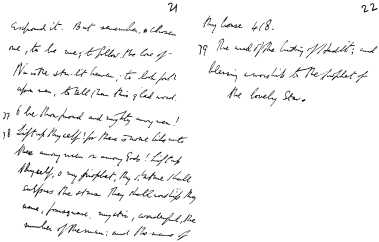 21
expound it. But remember, o chosen
one, to be me; to follow the love of
Nu in the star-lit heaven; to look forth
upon men, to tell them this glad word.
77 O be thou proud and mighty among men!
78 Lift up thyself! for there is none like unto
thee among men or among Gods! Lift up
thyself, o my prophet, thy stature shall
surpass the stars. They shall worship thy
name, foursquare, mystic, wonderful, the
number of the man; and the name of
22
thy house 418.
79 The end of the hiding of Hadit; and
blessing & worship to the prophet of
the lovely Star.